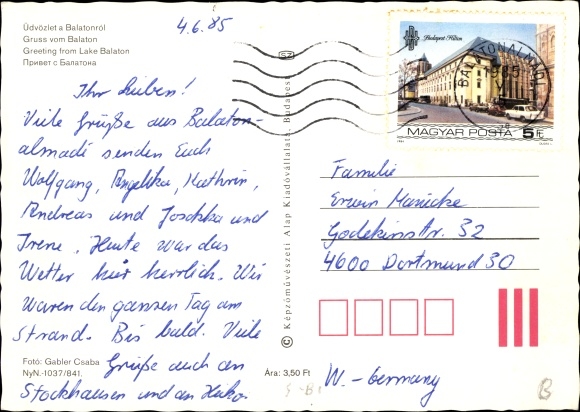 Üdvözlet a Balatonról
Gruss vom Balaton
Greeting from Lake Balaton
Привет с Балатона
4.6.85
Ihr Lieben!
Viele Grüße aus Balaton-
almadi senden Euch
Wolfgang, Angelika, Kathrin,
Andreas und Joschka und
Irene. Heute war das
Wetter hier herrlich. Wir
waren den ganzen Tag am
Strand. Bis bald. Viele
Grüße auch an
Stockhausen und an Heiko.
Fotó: Gabler Csaba
NyN.-1037/841.
Ára: 3,50 Ft
SZ
© Képzőművészeti Alap Kiadóvállalata, Budapest
Budapest Hilton
MAGYAR POSTA 5 Ft
BALATONALMÁDI
1985
Familie
Erwin
Godekinstr. 32
4600 Dortmund 30
W.-Germany
B